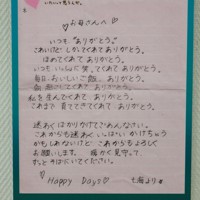 ♡お母さんへ♡
いつも"ありがとう。
しかってくれてありがとう。
ほめてくれて ありがとう。
いつも いっしょに笑ってくれてありがとう。
毎日おいしいご飯、ありがとう。
私を生んでくれて ありがとう。
これまで育ててきてくれてありがとう。
迷わくばかりかけてごめんなさい。
これからも迷わくいっぱいかけちゃう
かもしれないけど これからもよろしく
お願いします。 暖かく見守って
ずっとそばにいてください。
♡Happy Day♡
七海より